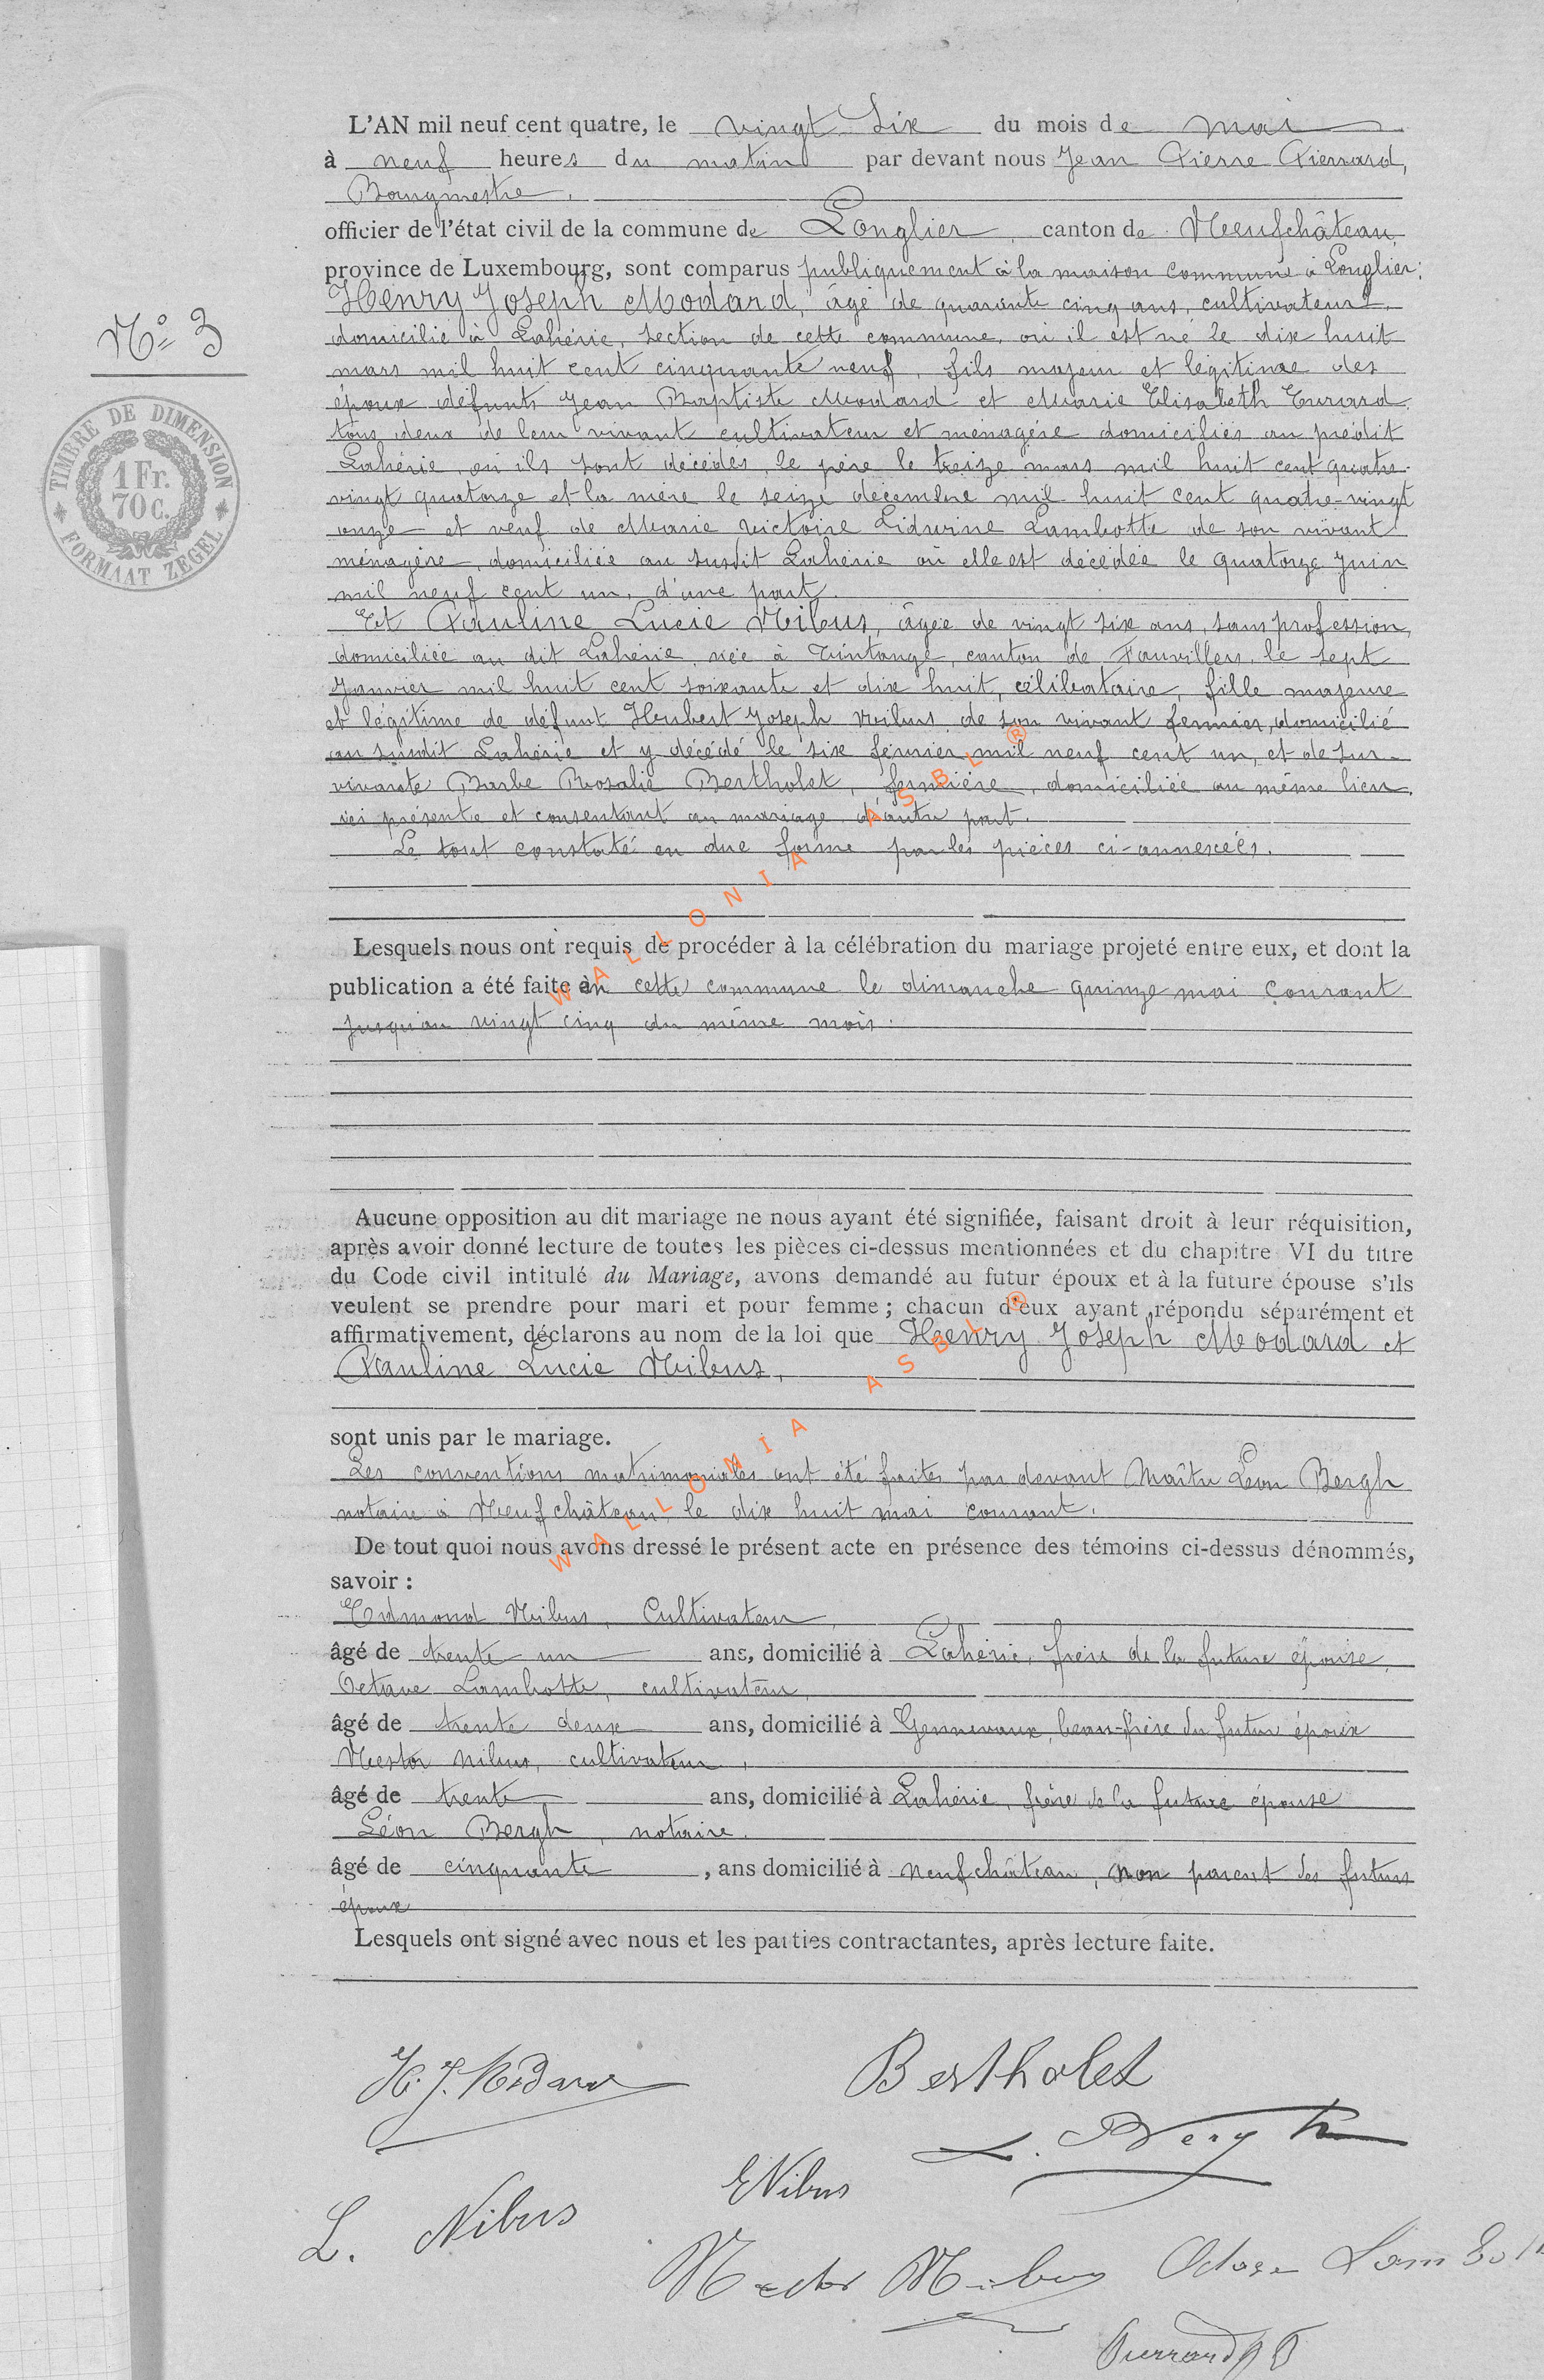 L'AN mil neuf cent quatre, le vingt six du mois de mai
à neuf heures du matin par devant nous Jean Pierre Pierrard,
Bourgmestre,
officier de l'état civil de la commune de Longlier, canton de Neufchâteau,
province de Luxembourg, sont comparus publiquement à la maison commune à Longlier:
Henry Joseph Modard, âgé de quarante cinq ans, cultivateur,
N° 3
domicilié à Lahérie, section de cette commune, où il est né le dix huit
mars mil huit cent cinquante neuf, fils majeur et légitime des
époux défunts Jean Baptiste Modard et Marie Elisabeth Evrard
TIMBRE DE DIMENSION
1 Fr.
70 c.
FORMAAT ZEGEL
tous deux de leur vivant cultivateur et ménagère domiciliés au prédit
Lahérie, où ils sont décédés, le père le treize mars mil huit cent quatre-
vingt quatorze et la mère le seize décembre mil huit cent quatre-vingt
onze et veuf de Marie Victoire Lidwine Lambotte de son vivant
ménagère, domiciliée au susdit Lahérie où elle est décédée le quatorze Juin
mil neuf cent un, d'une part.
Et Pauline Lucie Nibus, âgée de vingt six ans, sans profession,
domiciliée au dit Lahérie, née à Tintange, canton de Fauvillers, le sept
Janvier mil huit cent soixante et dix huit, célibataire, fille majeure
et légitime de défunt Hubert Joseph Nibus de son vivant fermier, domicilié
au susdit Lahérie et y décédé le six février mil neuf cent un, et de sur-
vivante Barbe Rosalie Bertholet, fermière, domiciliée au même lieu,
ici présente et consentant au mariage d'autre part.
Le tout constaté en due forme par les pièces ci-annexées.
Lesquels nous ont requis de procéder à la célébration du mariage projeté entre eux, et dont la
publication a été faite en cette commune le dimanche quinze mai courant
jusqu'au vingt cinq du même mois.
WALLONIA ASBL ®
Aucune opposition au dit mariage ne nous ayant été signifiée, faisant droit à leur réquisition,
après avoir donné lecture de toutes les pièces ci-dessus mentionnées et du chapitre VI du titre
du Code civil intitulé du Mariage, avons demandé au futur époux et à la future épouse s'ils
veulent se prendre pour mari et pour femme ; chacun d'eux ayant répondu séparément et
affirmativement, déclarons au nom de la loi que Henry Joseph Modard et
Pauline Lucie Nibus,
sont unis par le mariage.
Les conventions matrimoniales ont été faites par devant Maître Léon Bergh
notaire à Neufchâteau, le dix huit mai courant.
WALLONIA ASBL ®
De tout quoi nous avons dressé le présent acte en présence des témoins ci-dessus dénommés,
savoir :
Edmond Nibus, Cultivateur,
âgé de trente un ans, domicilié à Lahérie, frère de la future épouse,
Octave Lambotte, cultivateur,
âgé de trente deux ans, domicilié à Gennevaux, beau-frère du futur époux
Nestor Nibus, cultivateur,
âgé de trente ans, domicilié à Lahérie, frère de la future épouse
Léon Bergh, notaire.
âgé de cinquante, ans domicilié à Neufchâteau, non parent des futurs
époux
Lesquels ont signé avec nous et les parties contractantes, après lecture faite.
H. J. Modard
Bertholet
L. Bergh
E Nibus
L. Nibus
Nestor Nibus Octave Lambotte
Pierrard JP